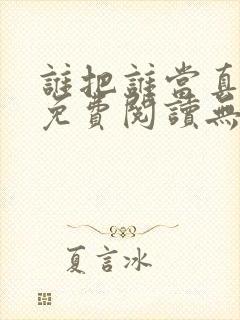 誰把誰當真
免費閱讀無
夏言冰